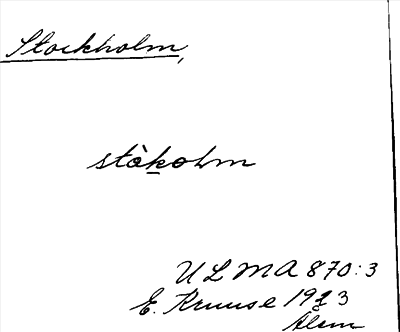 Stockholm,
stàkolm
ULMA 870:3
E. Kruuse 1913
Ålem